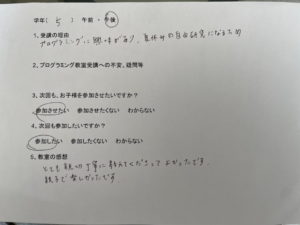 学年( 5 ) 午前・午後
1、受講の理由
プログラミングに興味があり、夏休みの自由研究になるため
2、プログラミング教室受講への不安、疑問等
3、次回も、お子様を参加させたいですか?
参加させたい 参加させたくない わからない
4、次回も参加したいですか?
参加したい 参加したくない わからない
5、教室の感想
とても親切丁寧に教えてくださってよかったです。
親子で楽しかったです